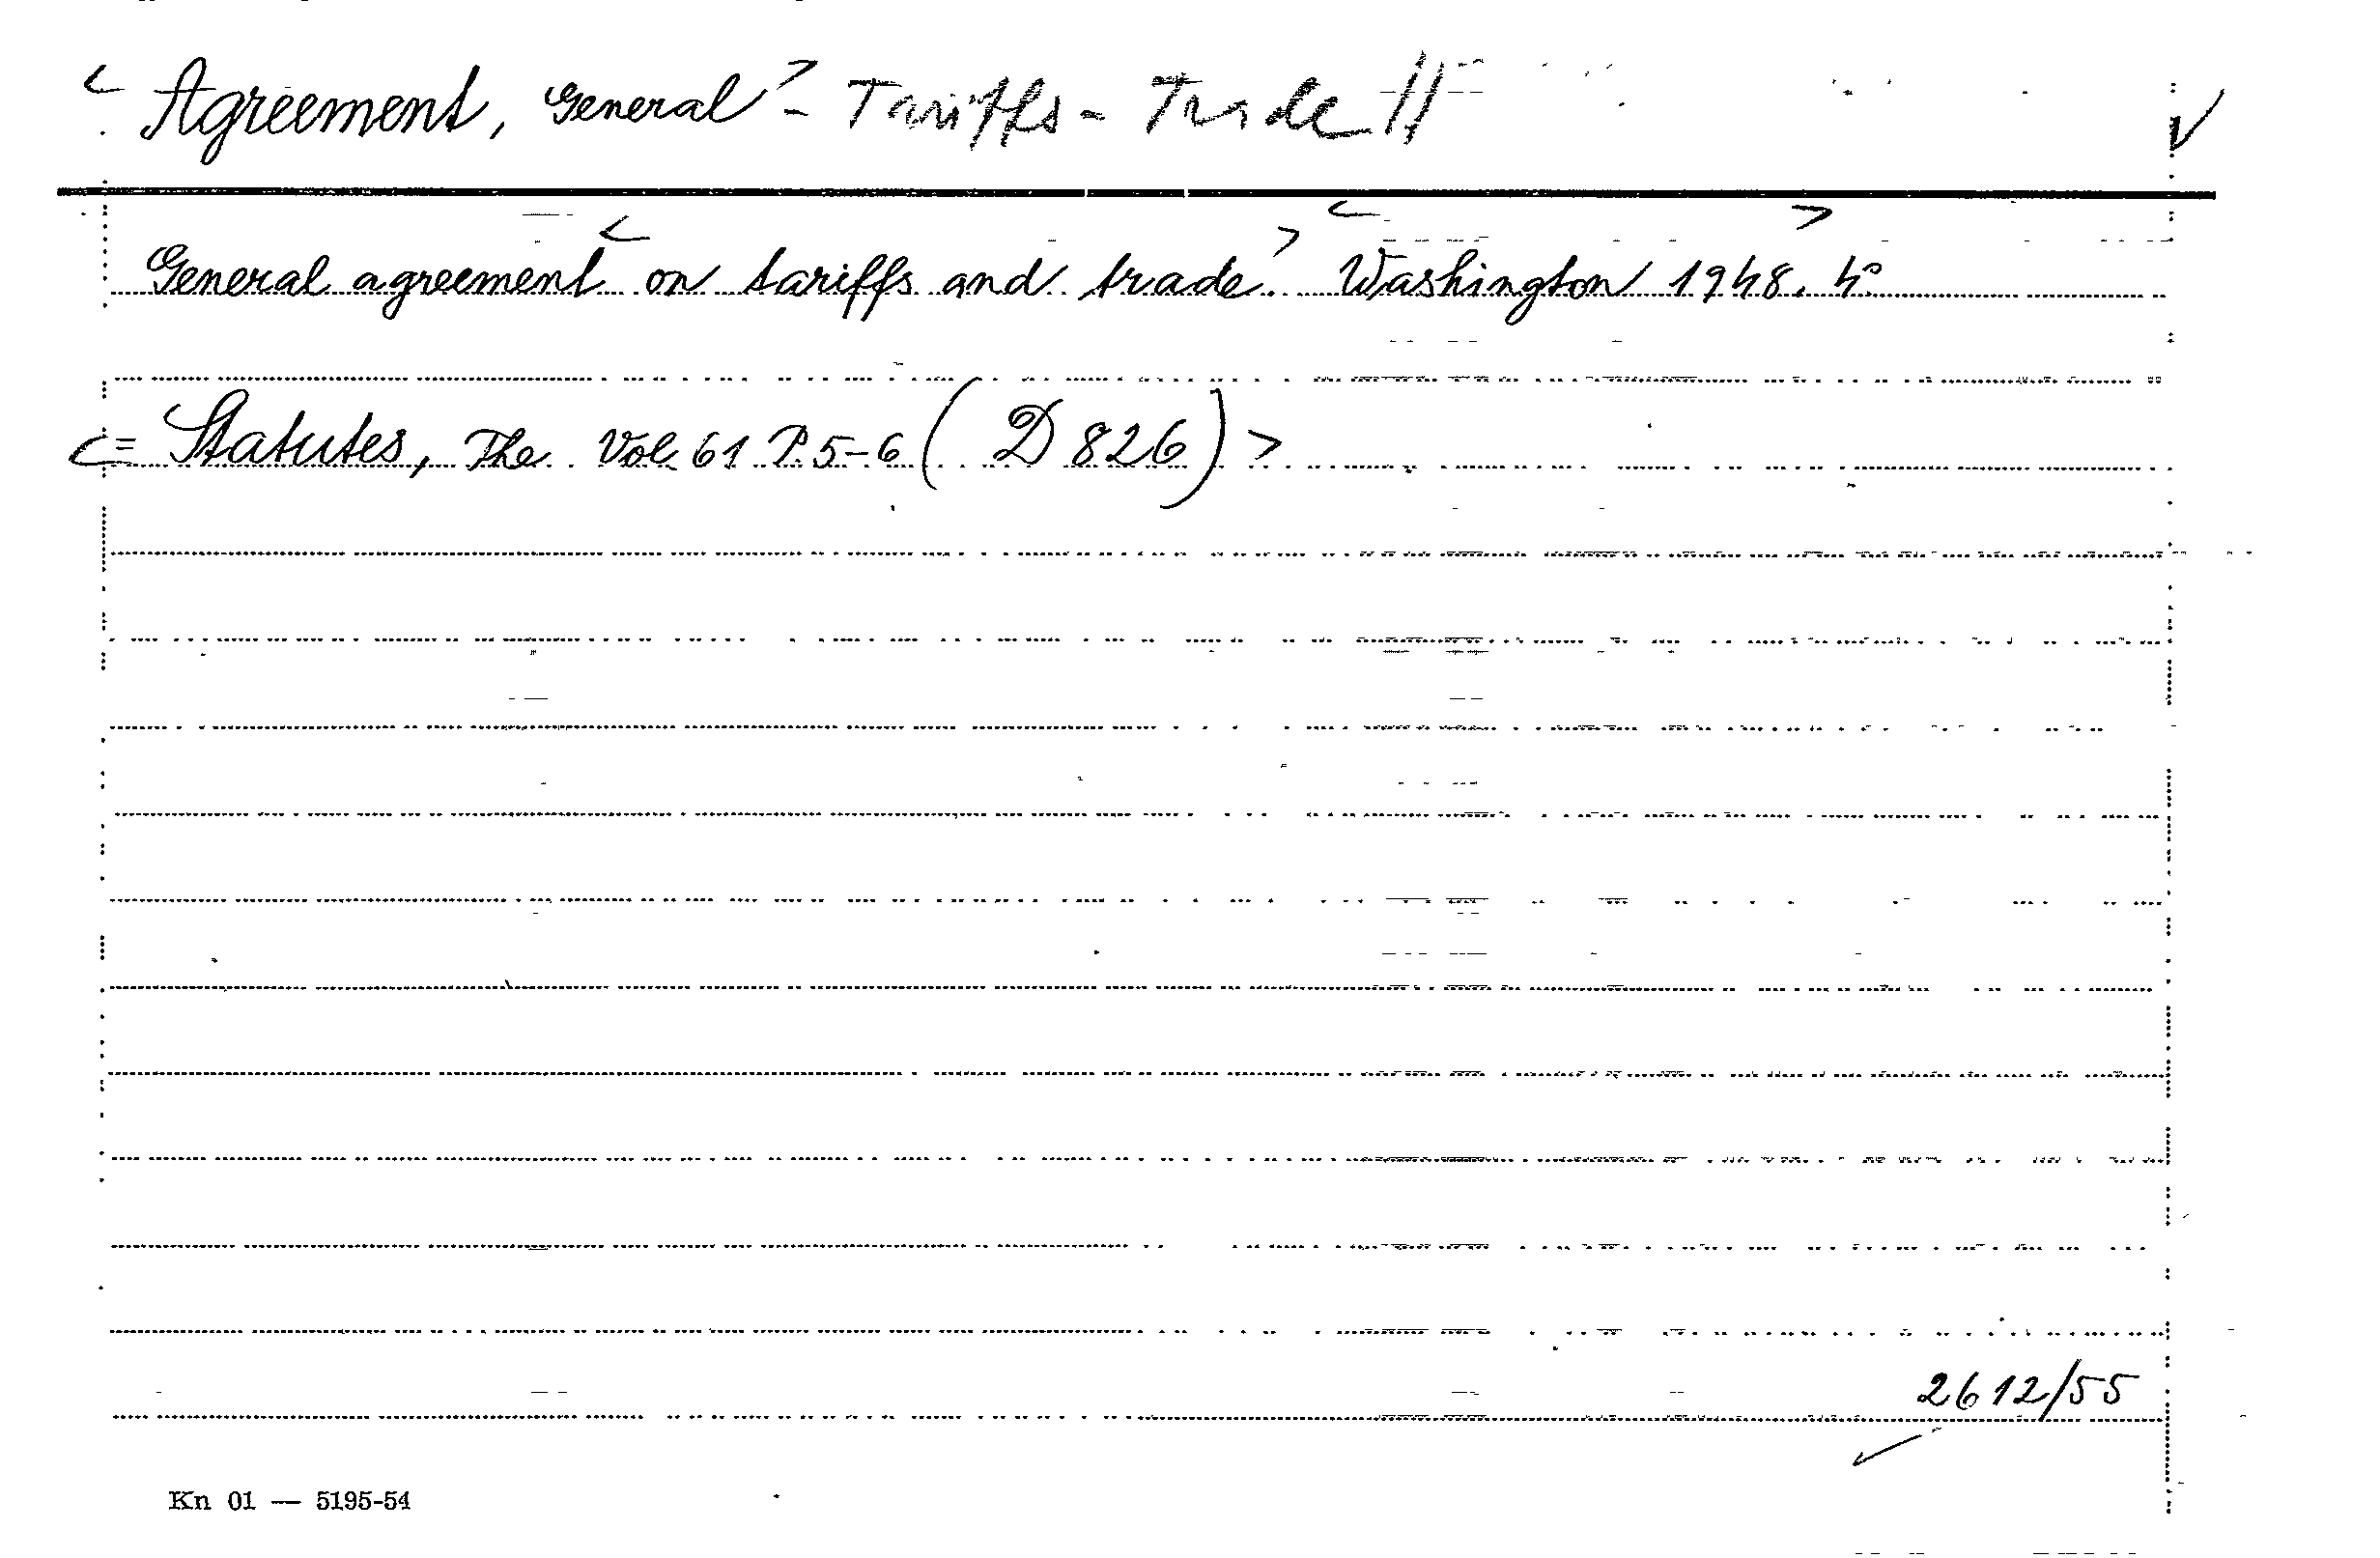 < Agreement, General > - Tariffs - Trade //
General agreement < on tariffs and trade. > < Washington 1948. 4° >
<= Statutes, The Vol 61 P. 5-6 ( D 826 ) >
2612/55
Kn 01 — 5195-54